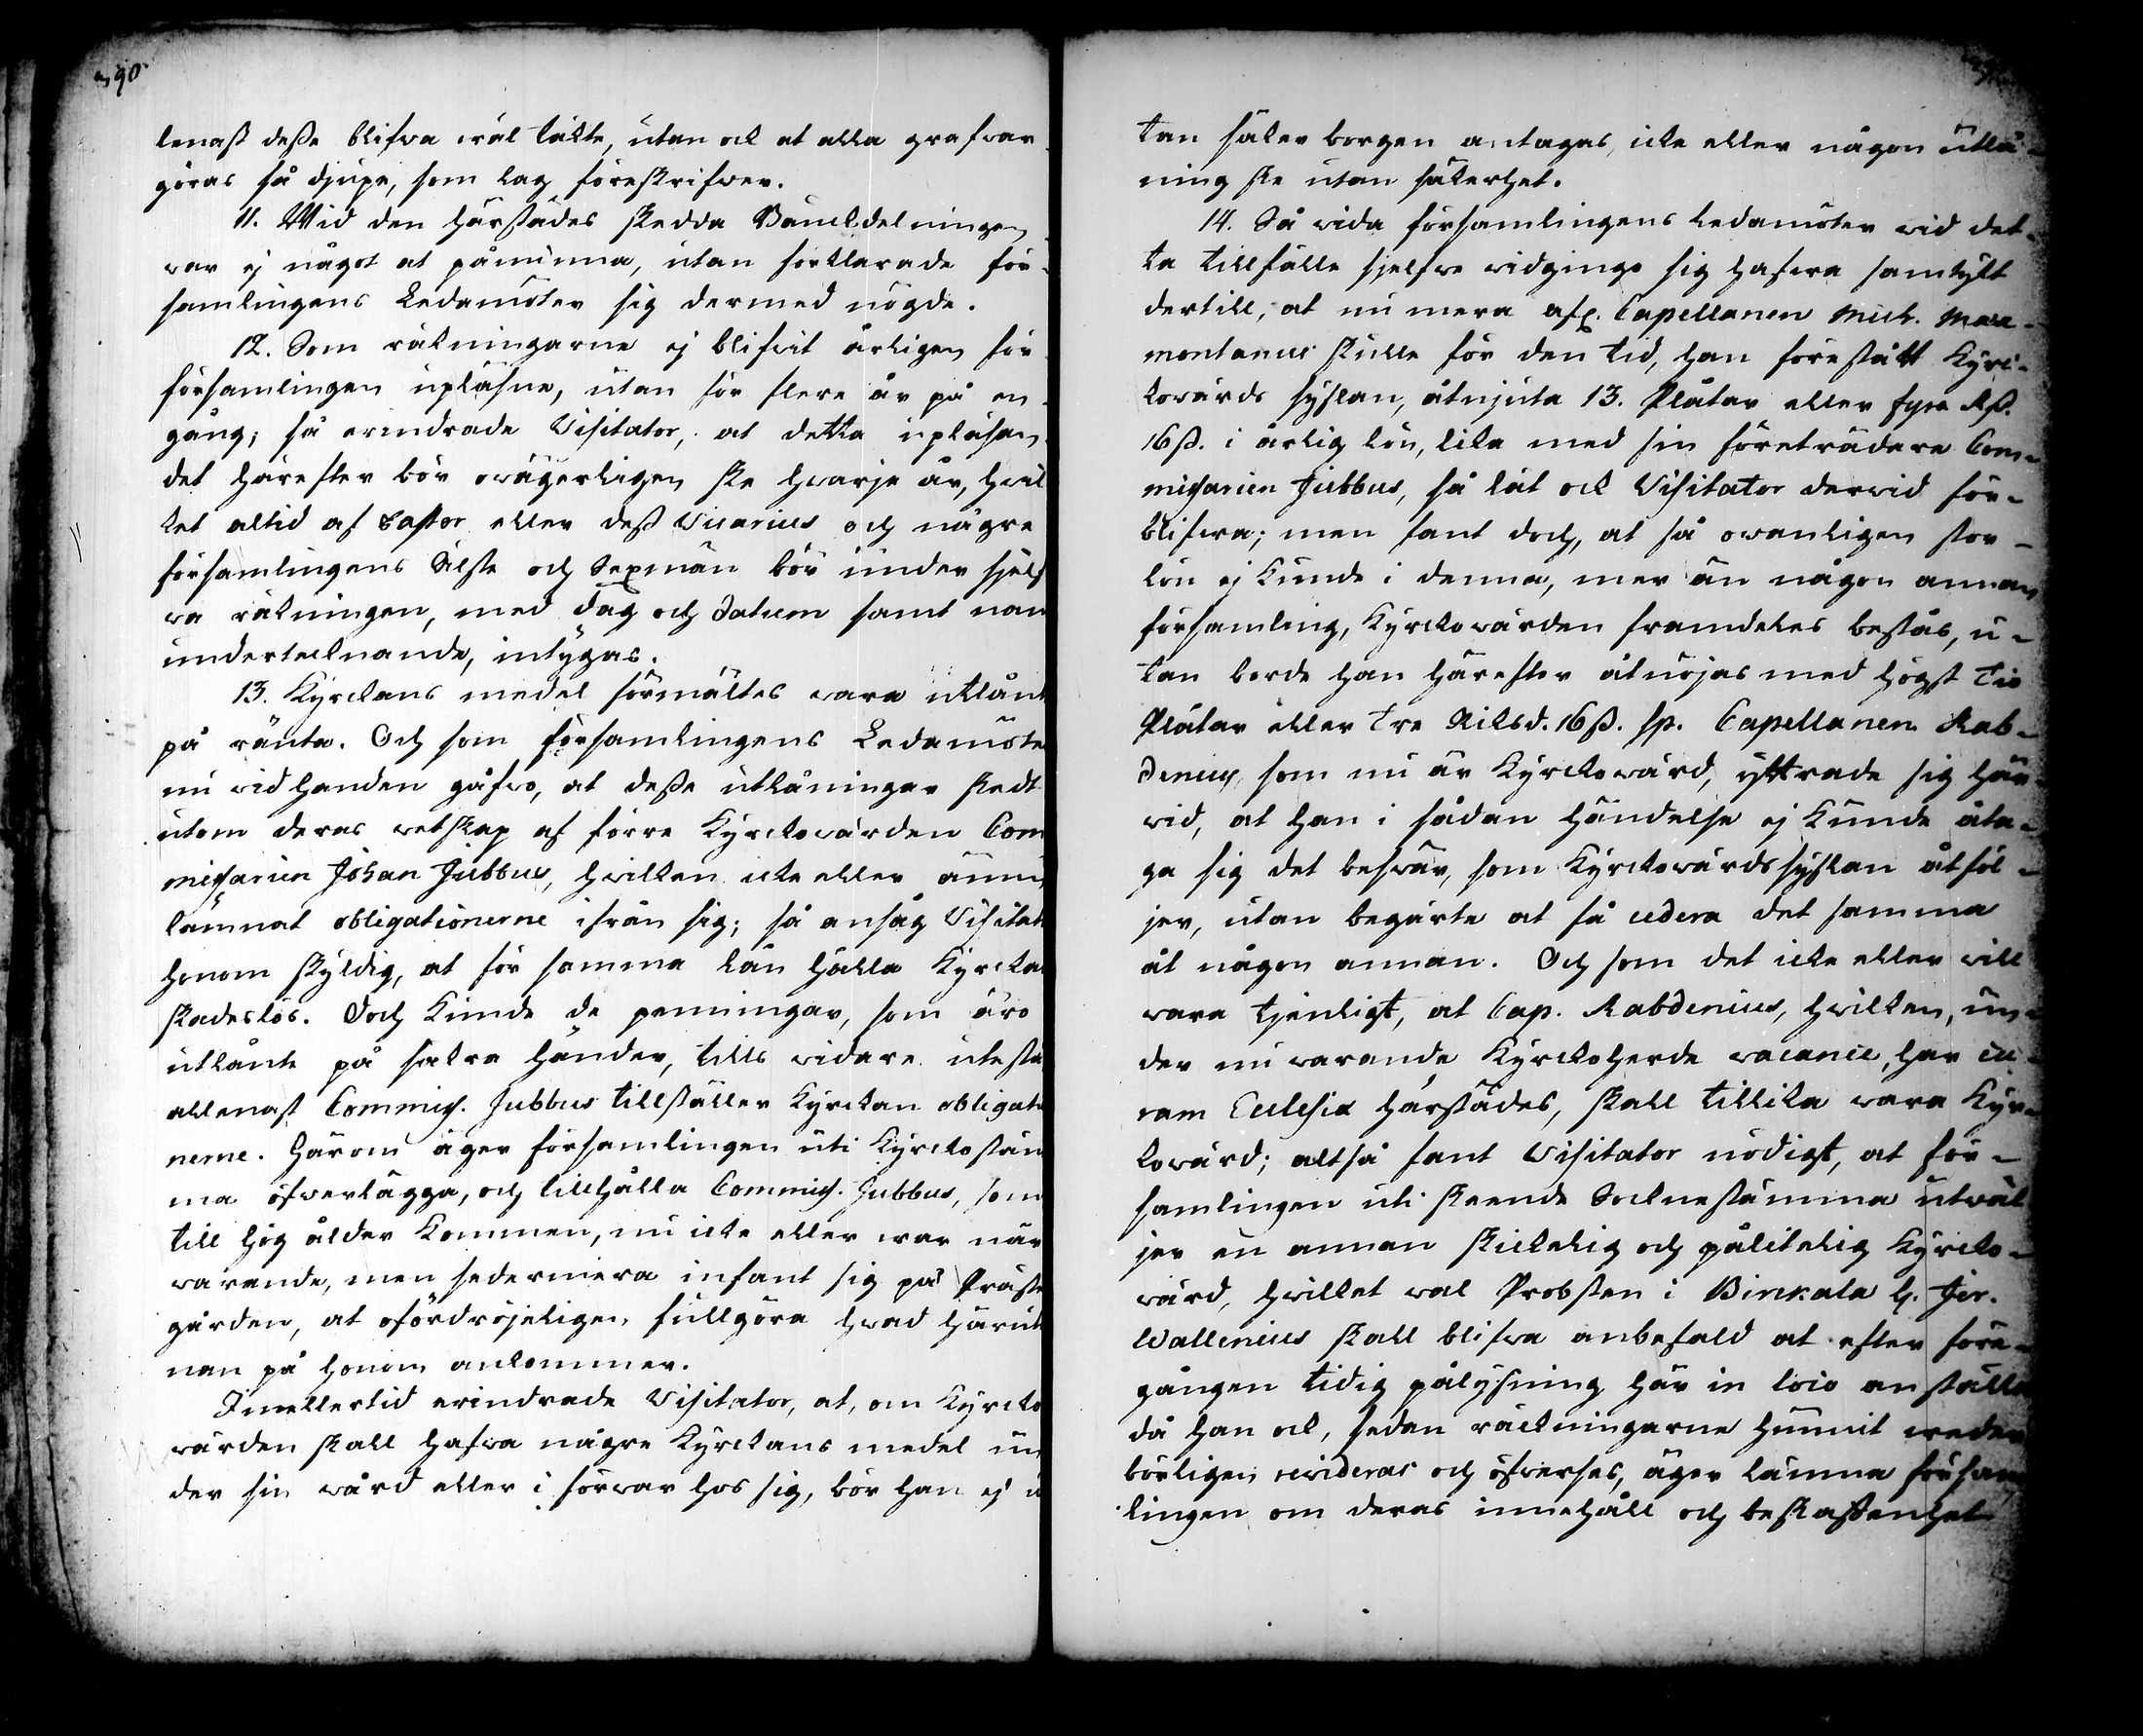 90
lenast desse blifva wäl täkte, utan ock at alla grafvar
göras så djupe, som lag föreskrifwer.
11. Wid den härstädes skedda Bänckdelningen
war ej något at påminna, utan förklarade för-
samlingens Ledamöter sig dermed nögde.
12. Som räkningarne ej blifvit årligen för
församlingen upläsne, utan för flere år på en
gång; så erindrade Visitator, at detta upläsan-
det härefter bör owägerligen ske hwarje år, hwil
ket altid af Pastor eller dess Vicarius och någre
församlingens Älste och Sexmän bör under sjelf
wa räkningen, med dag och datum samt namn
undertecknande, intygas.
13. Kyrckans medel förmältes wara utlånt
på ränta. Och som församlingens Ledamöte
nu wid handen gåfwo, at desse utlåningar skedt
utom deras wetskap af förre Kyrckowärden Com
missarien Johan Jubbus, hwilken icke eller ännu
lämnat obligationerne ifrån sig; så ansåg Visitat
honom skyldig, at för samma lån hålla Kyrcka
skadeslös. Doch kunde de penningar, som äro
utlånte på säkra händer, tills widare utestå
allenast Commiss. Jubbus tillställer Kyrckan obligati
nerne. Härom äger församlingen uti Kyrckostäm
ma öfwerlägga, och tillhålla Commiss. Jubbus, som
till hög ålder kommen, nu icke eller war när
warande, men sedermera infant sig på Präste
gården, at ofördröjeligen fullgöra hwad härut
nan på honom ankommer.
Imellertid erindrade Visitator, at, om Kyrcko
wärden skall hafwa någre Kyrckans medel un
der sin wård eller i förwar hos sig, bör han ej u
tan säker borgen antagas, icke eller någon utlå-
ning ske utan säkerhet.
14. Så wida församlingens ledamöter wid det-
ta tillfälle sjelfwe widgingo sig hafwa samtykt
dertill, at nu mera afl. Capellanen Mich.
montanus skulle för den tid, han förestått Kyrc-
kowärds syslan, åtnjuta 13. Plåtar eller fyra Rß.
16ß. i årlig lön, lika med sin företrädare Com-
missarien Jubbus, så lät ock Visitator derwid för-
blifwa; men fant doch, at så owanligen stor
lön ej kunde i denna, mer än någon annan
församling, Kyrckowärden framdeles bestås, u-
tan borde han härefter åtnöjas med högst Tio
Plåtar eller Tre Riksd. 16ß. sp. Capellanen Rab-
denius, som nu är Kyrckowärd, yttrade sig här-
wid, at han i sådan händelse ej kunde åta-
ga sig det beswär, som Kyrckowärdssyslan åtföl-
jer, utan begärte at få cedera det samma
åt någon annan. Och som det icke eller will
wara tjenligt, at Cap. Rabdenius, hwilken, un-
der nu warande Kyrckoherde vacance, har cu-
ram Ecclesiæ härstädes, skall tillika wara Kyrc-
kowärd; altså fant Visitator nödigt, at för-
samlingen uti skeende Socknestämma utwäl
jer en annan skickelig och pålitelig Kyrcko-
wärd, hwilket wal Probsten i Birkala H. Jer.
Wallenius skall blifwa anbefald at efter före-
gången tidig pålysning här in loco anställa
då han ock, sedan räckningarne hunnit weder
börligen revideras och öfwerses, äger lämna försam
lingen om deras innehåll och beskaffenhet